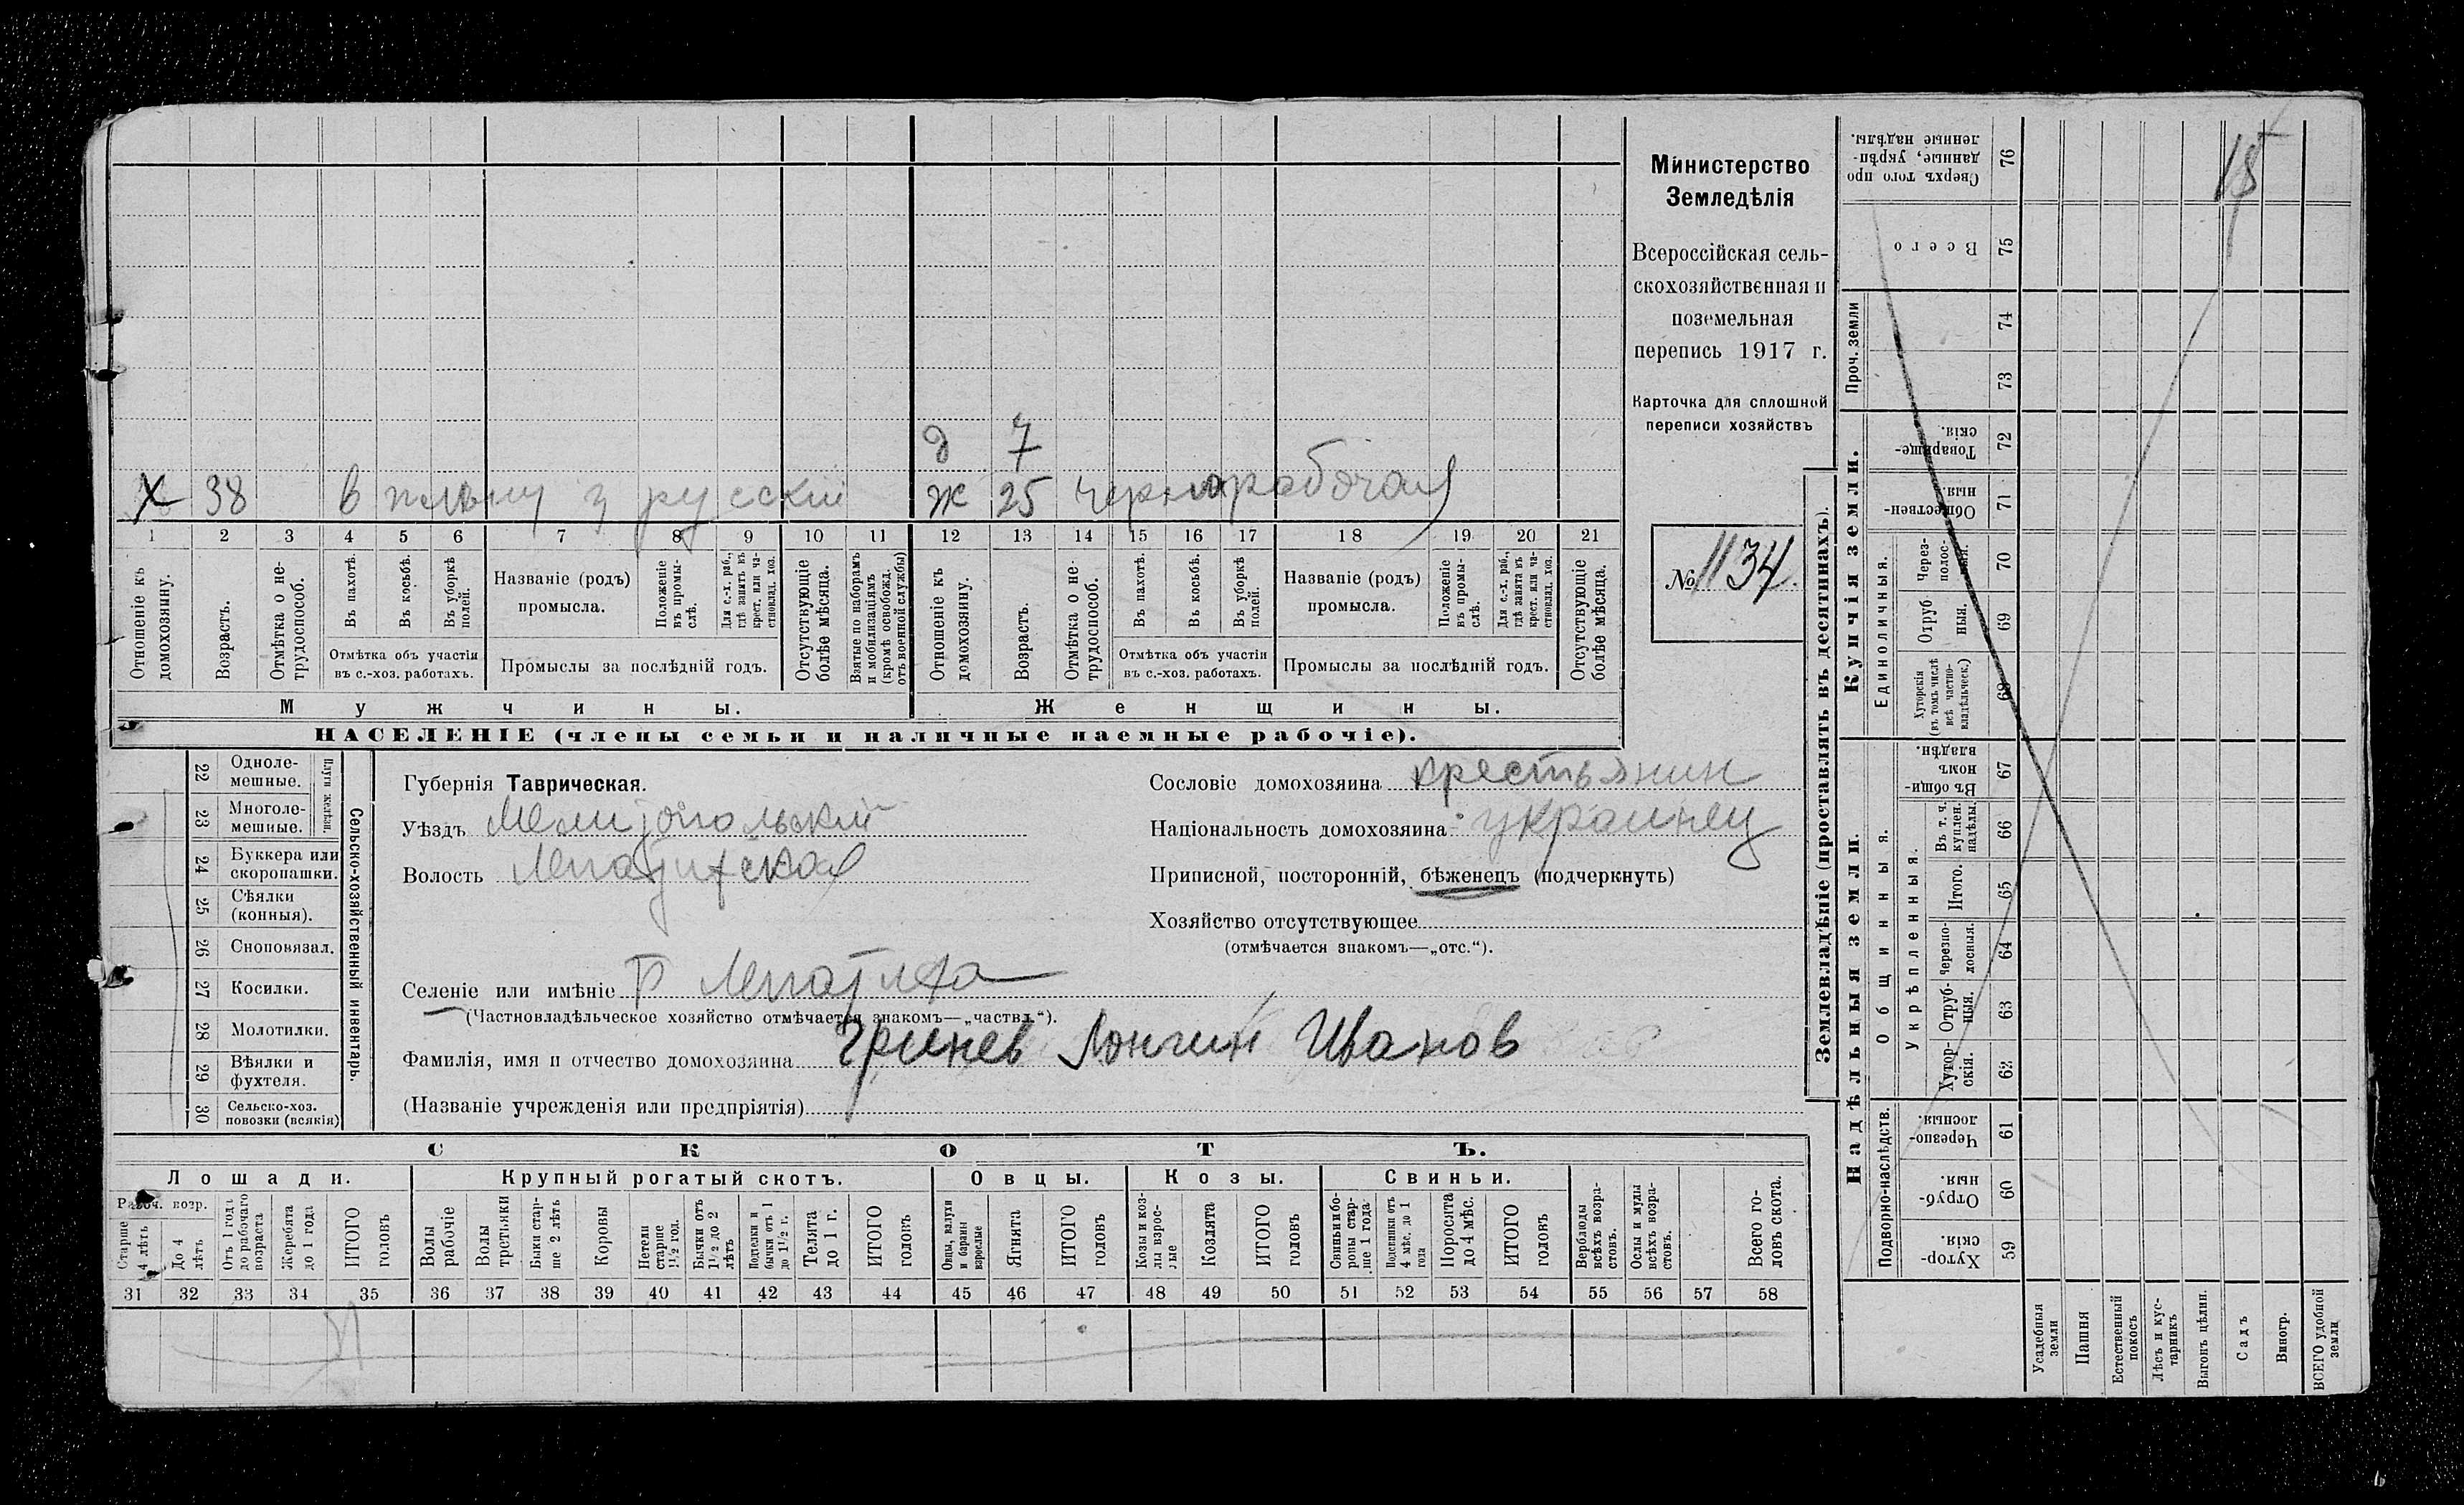 д 7
х 38 в плену русский ж 25 чернорабочая
1 2 3 4 5 6 7 8 9 10 11 12 13 14 15 16 17 18 19 20 21
Отношеніе къ домохозяину.
Возрастъ.
Отмѣтка о нетрудоспособ.
Въ пахотѣ.
Въ косьбѣ.
Въ уборкѣ полей.
Отмѣтка объ участіи
въ с.-хоз. работахъ.
Названіе (родъ)
промысла.
Положеніе въ промыслѣ.
Для с.-х. раб., гдѣ занятъ въ крест. или частновлад. хоз.
Промыслы за послѣдній годъ.
Отсутствующіе болѣе мѣсяца.
Взятые по наборамъ и мобилизаціямъ (кромѣ освобожд. отъ военной службы)
Отношеніе къ домохозяину.
Возрастъ.
Отмѣтка о нетрудоспособ.
Въ пахотѣ.
Въ косьбѣ.
Въ уборкѣ полей.
Отмѣтка объ участіи
въ с.-хоз. работахъ.
Названіе (родъ)
промысла.
Положеніе въ промыслѣ.
Для с.-х. раб., гдѣ занята въ крест. или частновлад. хоз.
Промыслы за послѣдній годъ.
Отсутствующіе болѣе мѣсяца.
Мужчины. Женщины.
НАСЕЛЕНІЕ (члены семьи и наличные наемные рабочіе).
Министерство
Земледѣлія
Всероссійская сель-
скохозяйственная и
поземельная
перепись 1917 г.
Карточка для сплошной
переписи хозяйствъ
№ 1134.
22 Одноле-
мешные.
23 Многоле-
мешные.
Плуги желѣзн.
24 Буккера или
скоропашки.
25 Сѣялки
(конныя).
26 Сноповязал.
27 Косилки.
28 Молотилки.
29 Вѣялки и
фухтеля.
30 Сельско-хоз.
повозки (всякія)
Сельско-хозяйственный инвентарь.
Губернія Таврическая.
Уѣздъ Мелитопольский
Волость Лепатихская
Селеніе или имѣніе Лепатиха
(Частновладѣльческое хозяйство отмѣчается знакомъ—„частвл.“).
Фамилія, имя и отчество домохозяина Гринев Лонгин Иванов
(Названіе учрежденія или предпріятія)
Сословіе домохозяина крестьянин
Національность домохозяина украинец
Приписной, посторонній, бѣженецъ (подчеркнуть)
Хозяйство отсутствующее
(отмѣчается знакомъ—„отс.“).
СКОТЪ.
Лошади. Крупный рогатый скотъ. Овцы. Козы. Свиньи.
Рабоч. возр.
Старше 4 лѣтъ
До 4 лѣтъ
Отъ 1 года до рабочаго возраста
Жеребята до 1 года
ИТОГО головъ
Волы рабочіе
Волы третьяки
Быки старше 2 лѣтъ
Коровы
Нетели старше 1½ год.
Бычки отъ 1½ до 2 лѣтъ
Подтелки и бычки отъ 1 до 1½ г.
Телята до 1 г.
ИТОГО головъ
Овцы, валухи и бараны взрослые
Ягнята
ИТОГО головъ
Козы и козлы взрослые
Козлята
ИТОГО головъ
Свиньи и боровы старше 1 года
Подсвинки отъ 4 мѣс. до 1 года
Поросята до 4 мѣс.
ИТОГО головъ
Верблюды всѣхъ возрастовъ.
Ослы и мулы всѣхъ возрастовъ.
Всего головъ скота.
31 32 33 34 35 36 37 38 39 40 41 42 43 44 45 46 47 48 49 50 51 52 53 54 55 56 57 58
Землевладѣніе (проставлять въ десятинахъ).
Сверхъ того проданные, укрѣпленные надѣлы. 76
Всего 75
Проч. земли
74
73
Купчія земли.
Товарищескія. 72
Общественныя. 71
Единоличныя.
Черезполосныя. 70
Отрубныя. 69
Хуторскія (въ томъ числѣ всѣ частновладѣльческ.) 68
Надѣльныя земли.
Общинныя.
Въ общинномъ владѣн. 67
Укрѣпленныя.
Въ т. ч. куплен. надѣлы. 66
Итого. 65
Черезполосныя. 64
Отрубныя. 63
Хуторскія. 62
Подворно-наслѣдств.
Черезполосныя. 61
Отрубныя. 60
Хуторскія. 59
Усадебныя земли
Пашня
Естественный покосъ
Лѣсъ и кустарникъ
Выгонъ цѣлин.
Садъ
Виногр.
ВСЕГО удобной земли